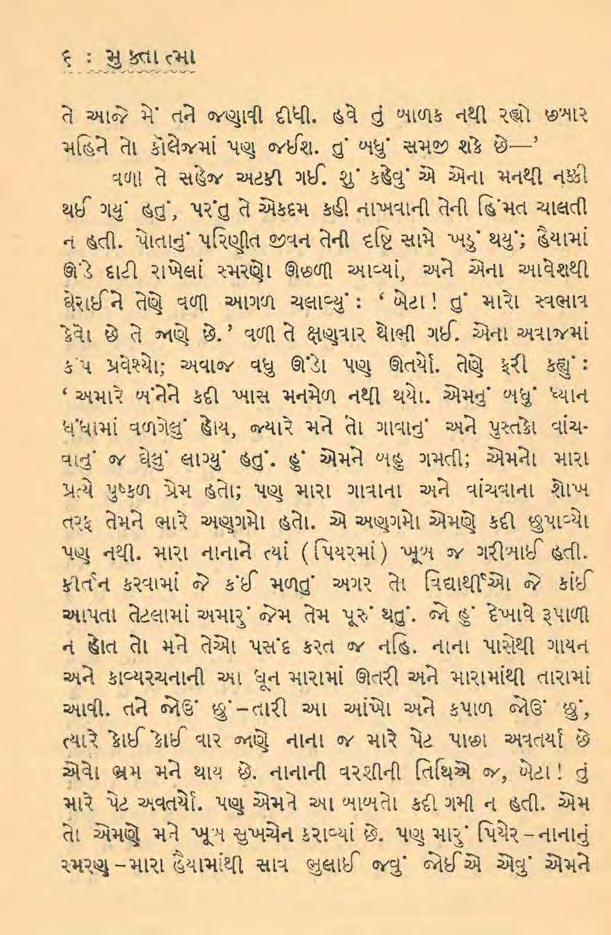 ૬ : મુક્તાત્મા
તે આજે મેં તને જણાવી દીધી. હવે તું બાળક નથી રહ્યો છમાર
મહિને તો કૉલેજમાં પણ જઈશ. તું બધું સમજી શકે છે—’
વળી તે સહેજ અટકી ગઈ. શું કહેવું એ એના મનથી નક્કી
થઈ ગયું હતું, પરંતુ તે એકદમ કહી નાખવાની તેની હિંમત ચાલતી
ન હતી. પોતાનું પરિણીત જીવન તેની દૃષ્ટિ સામે ખડું થયું; હૈયામાં
ઊંડે દાટી રાખેલાં સ્મરણો ઊછળી આવ્યાં, અને એના આવેશથી
ઘેરાઈને તેણે વળી આગળ ચલાવ્યું : ‘ બેટા ! તું મારો સ્વભાવ
કેવો છે તે જાણે છે.’ વળી તે ક્ષણવાર થોભી ગઈ. એના અવાજમાં
કંપ પ્રવેશ્યો; અવાજ વધુ ઊંડો પણ ઊતર્યો. તેણે ફરી કહ્યું :
‘ અમારે બંનેને કદી ખાસ મનમેળ નથી થયો. એમનું બધું ધ્યાન
ધંધામાં વળગેલું હોય, જ્યારે મને તો ગાવાનું અને પુસ્તકો વાંચ-
વાનું જ ઘેલું લાગ્યું હતું. હું એમને બહુ ગમતી; એમનો મારા
પ્રત્યે પુષ્કળ પ્રેમ હતો; પણ મારા ગાવાના અને વાંચવાના શોખ
તરફ તેમને ભારે અણગમો હતો. એ અણગમો એમણે કદી છુપાવ્યો
પણ નથી. મારા નાનાને ત્યાં ( પિયરમાં ) ખૂબ જ ગરીબાઈ હતી.
કીર્તન કરવામાં જે કંઈ મળતું અગર તો વિદ્યાર્થીઓ જે કાંઈ
આપતા તેટલામાં અમારું જેમ તેમ પૂરું થતું. જો હું દેખાવે રૂપાળી
ન હોત તો મને તેઓ પસંદ કરત જ નહિ. નાના પાસેથી ગાયન
અને કાવ્યરચનાની આ ધૂન મારામાં ઊતરી અને મારામાંથી તારામાં
આવી. તને જોઉં છું–તારી આ આંખો અને કપાળ જોઉં છું,
ત્યારે કોઈ કોઈ વાર જાણે નાના જ મારે પેટ પાછા અવતર્યા છે
એવો ભ્રમ મને થાય છે. નાનાની વરશીની તિથિએ જ, બેટા ! તું
મારે પેટ અવતર્યો. પણ એમને આ બાબતો કદી ગમી ન હતી. એમ
તો એમણે મને ખૂબ સુખચેન કરાવ્યાં છે. પણ મારું પિયેર–નાનાનું
સ્મરણ–મારા હૈયામાંથી સાવ ભુલાઈ જવું જોઈએ એવું એમને